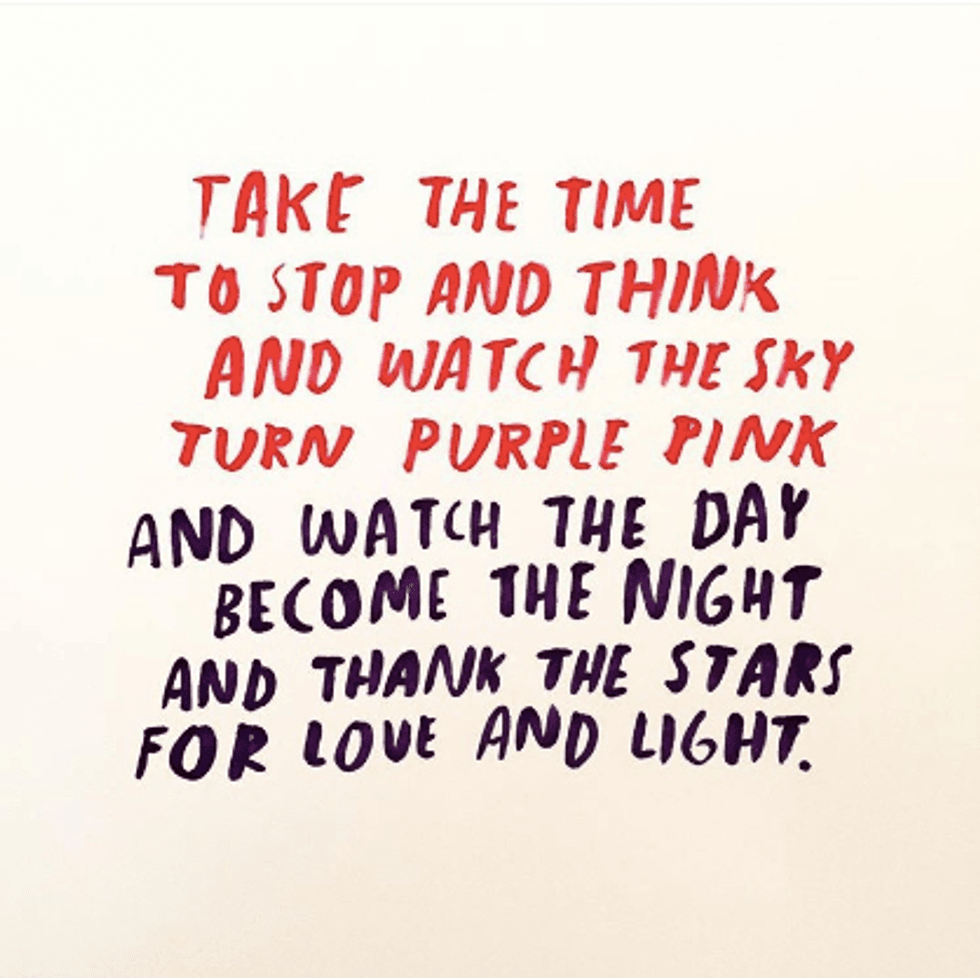 TAKE THE TIME
TO STOP AND THINK
AND WATCH THE SKY
TURN PURPLE PINK
AND WATCH THE DAY
BECOME THE NIGHT
AND THANK THE STARS
FOR LOVE AND LIGHT.